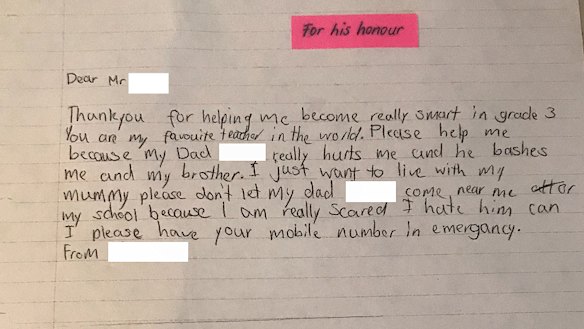 For his honour
Dear Mr
Thankyou for helping me become really smart in grade 3
You are my favouite teacher in the world. Please help me
because my Dad really hurts me and he bashes
me and my brother. I just want to live with my
mummy please don't let my dad come near me or
my school because I am really scared I hate him can
I please have your mobile number in emergancy.
From